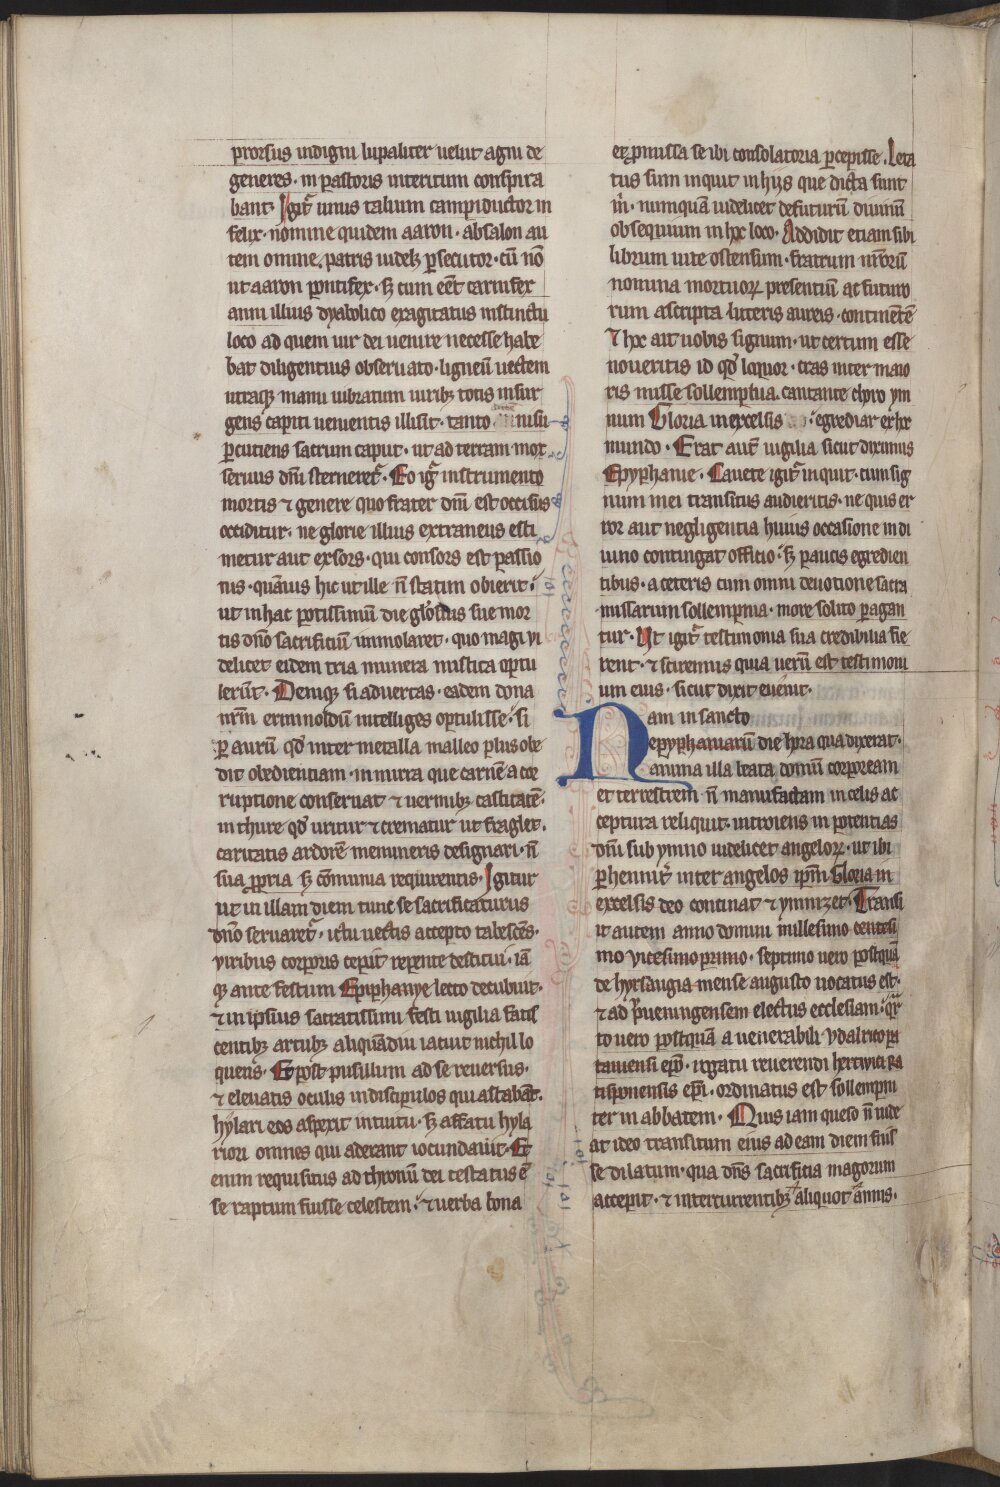 prorsus indigni lupaliter uelut agni de
generes · in pastoris interitum conspira
bant · Igit᷑ unus talium campiductor in
felix · nomine quidem aaron · absalon au
tem omine, patris uidelꝫ ꝑsecutor · cū nō
ut aaron pontifex · sꝫ cum eēt carnifex
anni illius dyabolico exagitatus instinctu
loco ad quem uir dei uenire necesse habe
bat diligentius obseruato · ligneū uectem
utraqꝫ manu uibratum uiribꝫ totis insur
gens capiti uenientis illisit · tanto nisu
ꝑcutiens sacrum caput · ut ad terram mox
seruus dn̄i sterneret᷑ · Eo ig᷑ instrumento
mortis ⁊ genere quo frater dn̄i est occisus
occiditur · ne glorie illius extraneus esti
metur aut exsors · qui consors est passio
nis · quāuis hic ut ille n̄ statim obierit ·
ut in hac potissimū die gl'osus sue mor
tis dn̄o sacrificiū immolaret · quo magi ui
delicet eidem tria munera mistica optu
lerūt · Deniqꝫ si aduertas · eadem dona
nr̄m erminoldū intelliges optulisse · si
ꝑ aurū qd̓ inter metalla malleo plus obe
dit obedientiam · in mirra que carnē a cor
ruptione conseruat ⁊ uermibꝫ castitatē ·
in thure qd̓ uritur ⁊ crematur ut fraglet ·
caritatis ardorē memineris designari · n̄
sua ꝓpria sꝫ cōmunia requirentis · Igitur
ut in illam diem tunc se sacrificaturus
dn̄o seruaret᷑ · ictu uectis accepto tabescēs ·
uiribus corporis cepit repente destitui · iā
qꝫ ante festum Epiphanye lecto decubuit ·
⁊ in ipsius sacratissimi festi uigilia fatis
centibꝫ artubꝫ aliquādiu iacuit nichil lo
quens · Et post pusillum ad se reuersus ·
⁊ eleuatis oculis in discipulos qui astabāt ·
hylari eos aspexit intuitu · sꝫ affatu hyla
riori omnes qui aderant iocundauit · Et
enim requisitus ad thronū dei testatus ē
se raptum fuisse celestem · ⁊ uerba bona
et ꝓmissa se ibi consolatoria ꝑcepisse · Leta
tus sum inquit in hijs que dicta sunt
m̓ · numquā uidelicet defuturū diuinū
obsequium in hoc loco · Addidit etiam sibi
librum uite ostensum · fratrum nr̄orū
nomina mortuoꝝ presentiū ac futuro
rum ascripta litteris aureis · continētē
⁊ hoc ait uobis signum · ut certum esse
noueritis id qd̓ loquor · cras inter maio
ris misse sollempnia · cantante choro ym
num Gloria in excelsis · egrediar ex hoc
mundo · Erat aut̄ uigilia sicut diximus
Epyphanie · Cauete igit᷑ inquit · cum sig
num mei transitus audieritis · ne quis er
ror aut negligentia huius occasione in di
uino contingat officio · sꝫ paucis egredien
tibus · a ceteris cum omni deuotione sacra
missarum sollempnia · more solito ꝑagan
tur · Ut igit᷑ testimonia sua credibilia fie
rent · ⁊ sciremus quia uerū est testimoni
um eius · sicut dixit euenit ·
Nam in sancto
epyphaniarū die hora qua dixerat ·
anima illa beata domū corpoream
et terrestrem n̄ manufactam in celis ac
ceptura reliquit · introiens in potentias
dn̄i sub ymno uidelicet angeloꝝ · ut ibi
ꝑhennit᷑ inter angelos ip̄m Gloria in
excelsis deo continat ⁊ ymnizet · Transi
it autem anno domini millesimo centesi
mo vicesimo primo · septimo uero postquā
de hyrsaugia mense augusto uocatus est ·
⁊ ad pͥueningensem electus ecclesiam · qͣr
to uero postquā a uenerabili Vdalrico pa
tauiensi ep̄o · rogatu reuerendi hertwici ra
tisponensis ep̄i · ordinatus est sollempni
ter in abbatem · Quis iam queso n̄ uide
at ideo transitum eius ad eam diem fuis
se dilatum · qua dn̄s sacrificia magorum
accepit · ⁊ intercurrentibꝫ aliquot annis ·